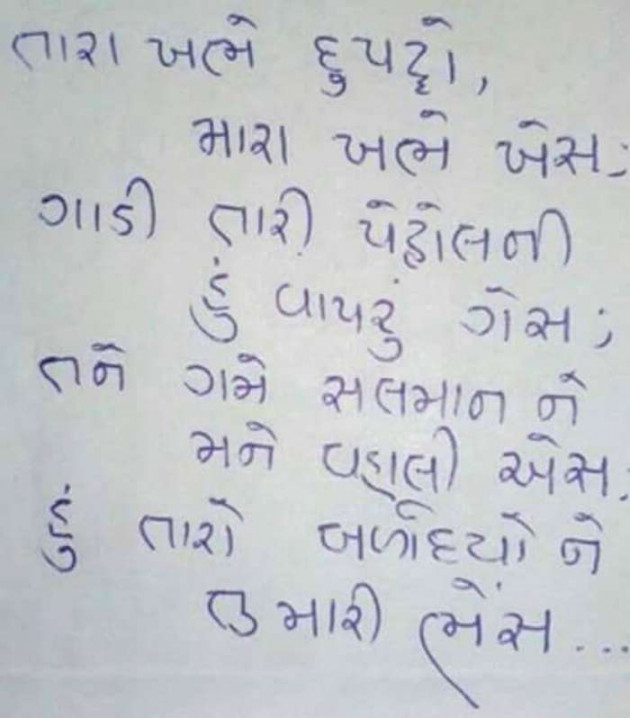 તારા ખભે દુપટ્ટો,
મારા ખભે ખેસ;
ગાડી તારી પેટ્રોલની
હું વાપરું ગેસ;
તને ગમે સલમાન ને
મને વહાલી ઐસ.
હું તારો બળદિયો ને
તુ મારી ભેંસ...